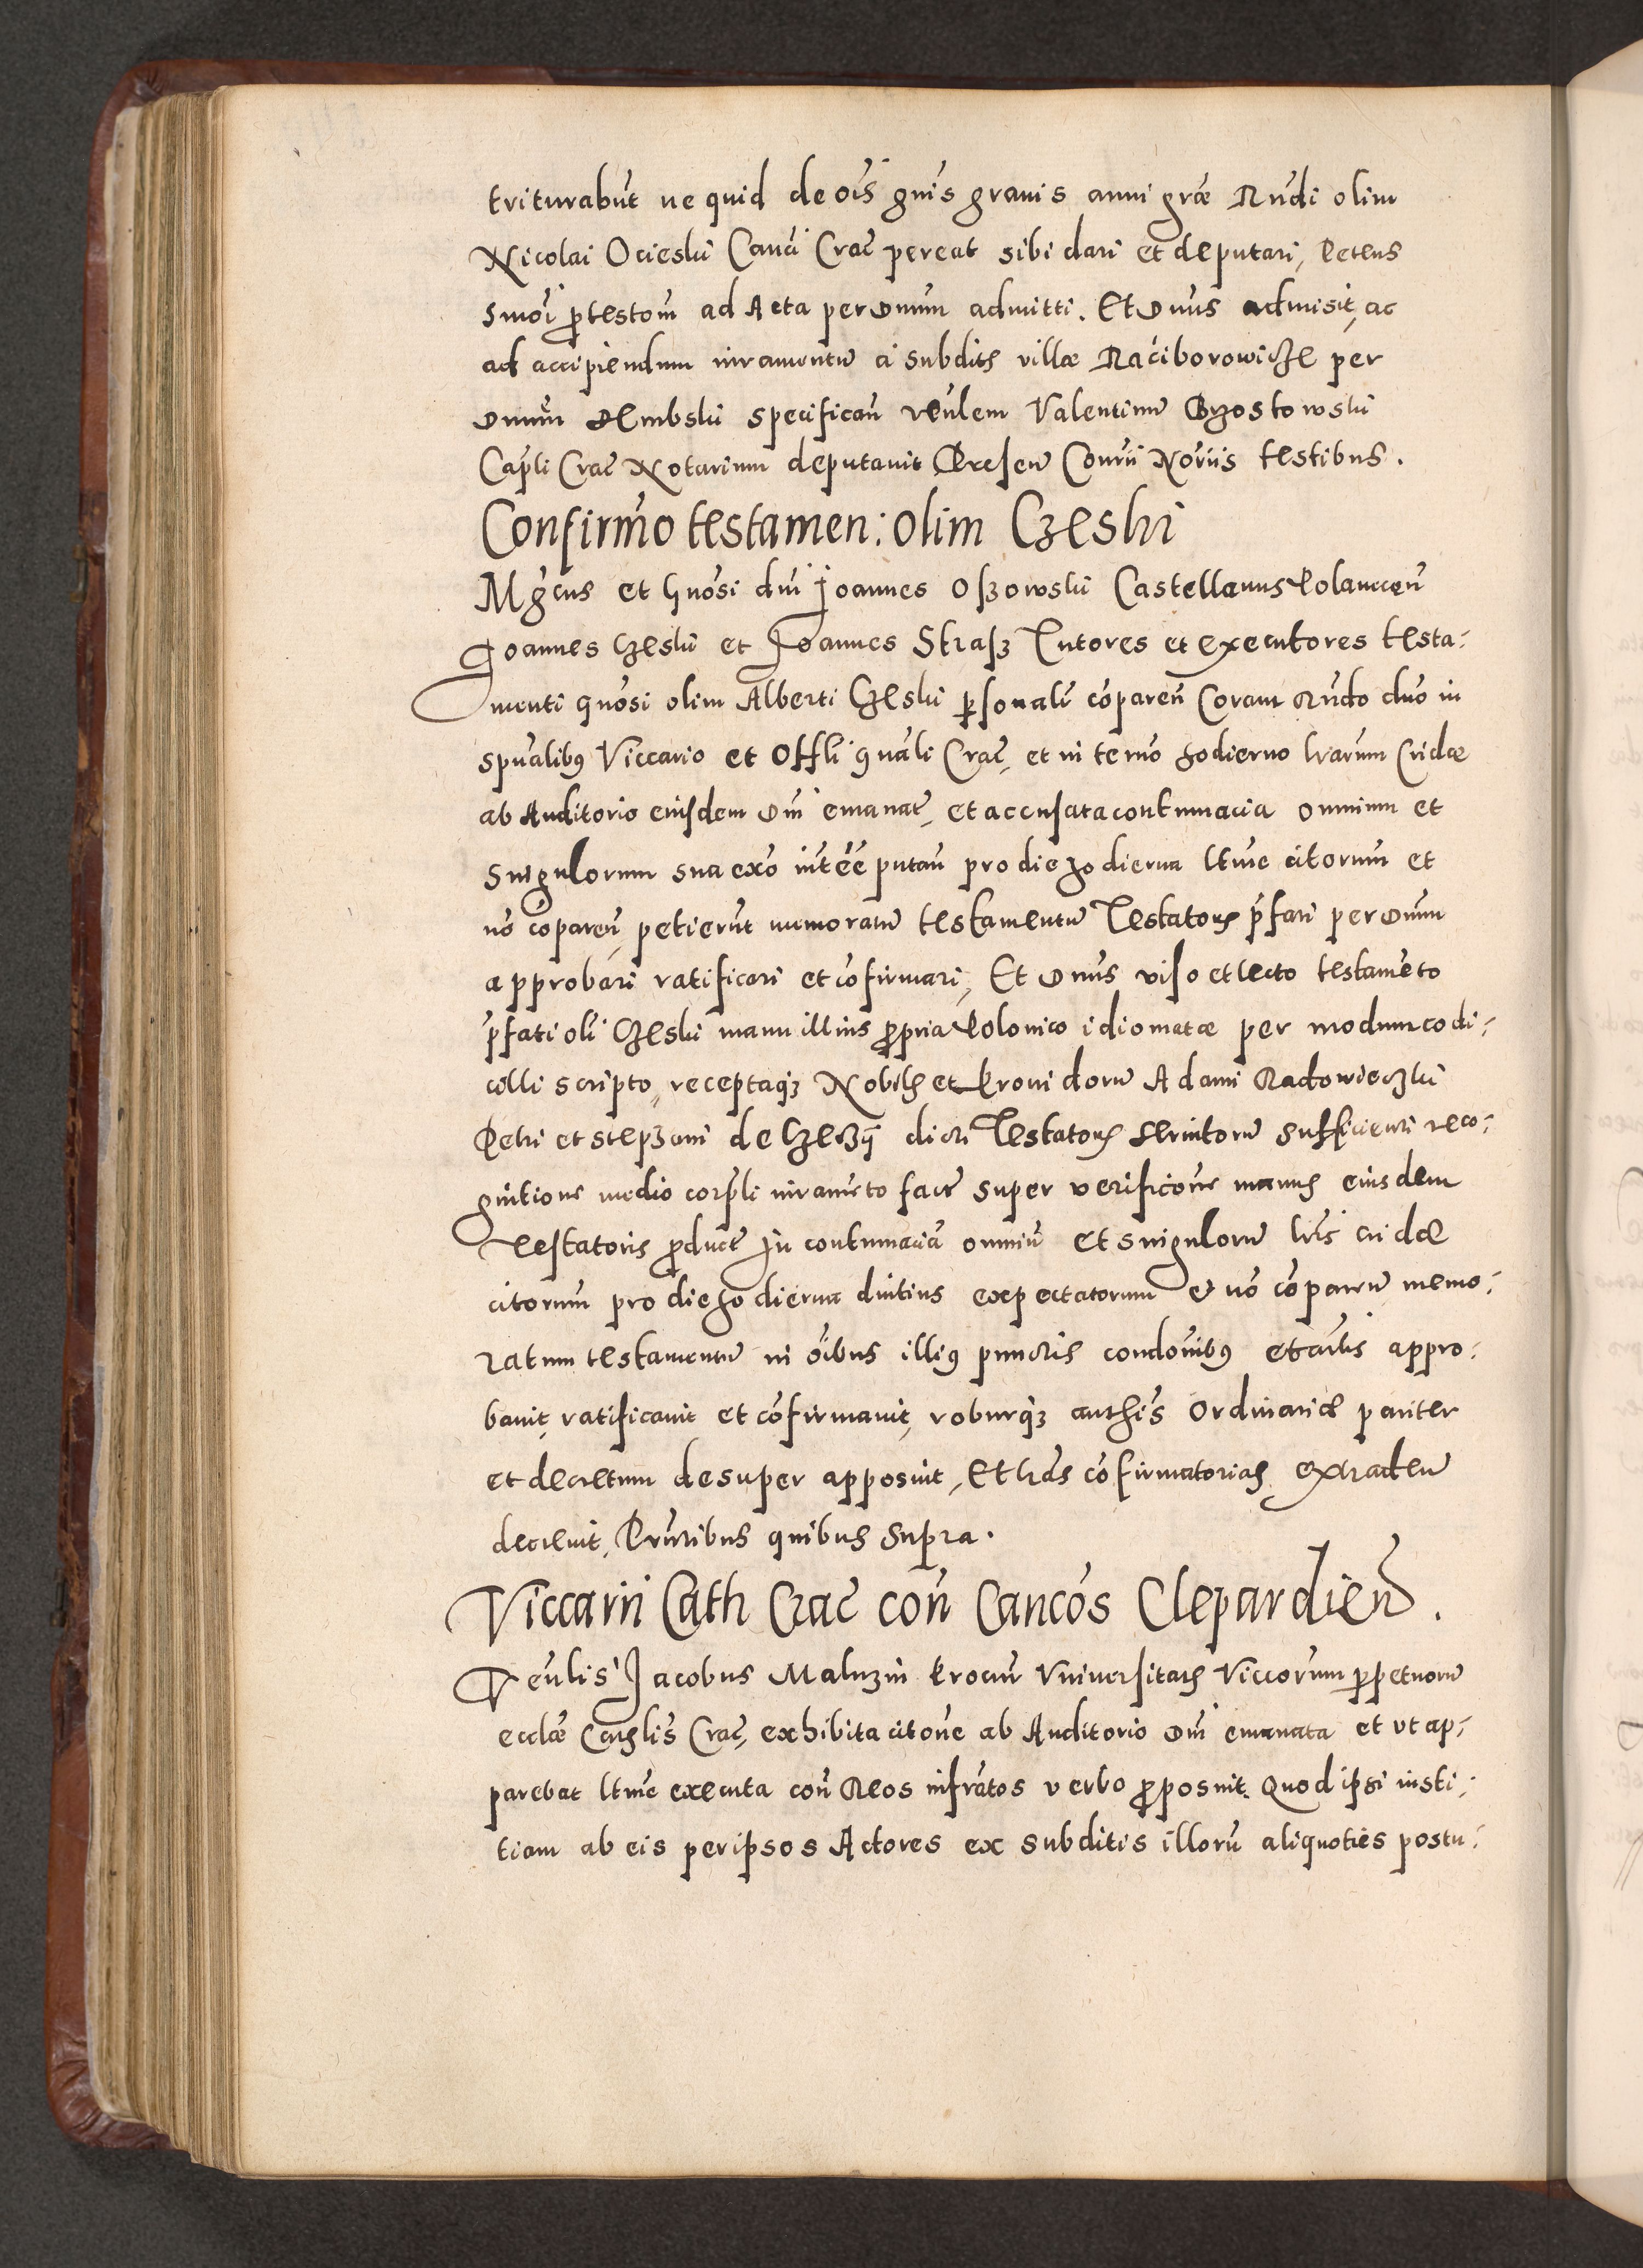 triturabūt ne quid de oīs gnīs granis anni grāe Rn̄di olim
Nicolai Ocieski Canci Crac̄ pereat sibi dari et deputari, Petens
smōi p̄testom̄ ad Acta per Dnum admitti. Et Dnus admisit, ac
ad accipiendum iuramentū a subditis villae Raciborowicze per
Dnum Dembski specifican̄ venlem Valentinū Brzostowski
Capli Crac̄ Notarium deputavit Presen̄ Conr̄ii Nōriis testibus.
Confirmo testamen: olim Czeski
Mḡcus et Gnōsi dn̄i Joannes Oszowski Castellanus Polanicen̄
Joannes Czeski et Joannes Strasz Tutores et executores testa-
menti gnōsi olim Alberti Czeski p̱sonalr̄ cōparen̄ Coram Rn̄do dn̄o in
spūalibus Viccario et Offl̄i gn̄ali Crac̄, et in termō hodierno lrārum Cridae
ab Auditorio eiusdem Dn̄i emanat̄, et accusata contumacia omnium et
singulorum sua exō int̄ēē putan̄ pro die hodierna ltm̄e citorum et
nō cōparen̄, petierūt memoratū testamentū Testatoris p̄fati per Dnum
approbari ratificari et cōfirmari, Et Dnus viso et lecto testamēto
p̄fati oli Czeski manu illius p̄pria Polonico idiomatae per modum codi-
cilli scripto, receptaqz Nobiliū et Providorū Adami Radowieczki
Petri et Stephani de Czeczij dicti Testatoris servitorū sufficienti reco-
gnitione medio corpl̄i iuramēto fact̄ super verificōne manus eiusdem
Testatoris p̄duct̄ In contumaciā omniū et singulorū lrīs cridae
citorum pro die hodierna diutius exepectatorum et nō cōparen̄ memo-
ratum testamentū in ōibus illius punctis condōnibus et artis appro-
bavit, ratificavit et cōfirmavit, roburqz authīs Ordinariae pariter
et decretum desuper apposuit, Et lrās cōfirmatorias extraden̄
decrevit, Prn̄tibus quibus supra.
Viccarii Cath Crac̄ con̄ Cancōs Clepardien̄.
Venlis Jacobus Maluzin Procur̄ Universitatis Viccorum p̱petuorū
ecclāe Cathlis Crac̄, exhibita citōne ab Auditorio Dn̄i emanata et ut ap-
parebat ltm̄e executa con̄ Reos infrātos verbo p̄posuit. Quod ipsi iusti-
tiam ab eis per ipsos Actores ex subditis illorū aliquoties postu-